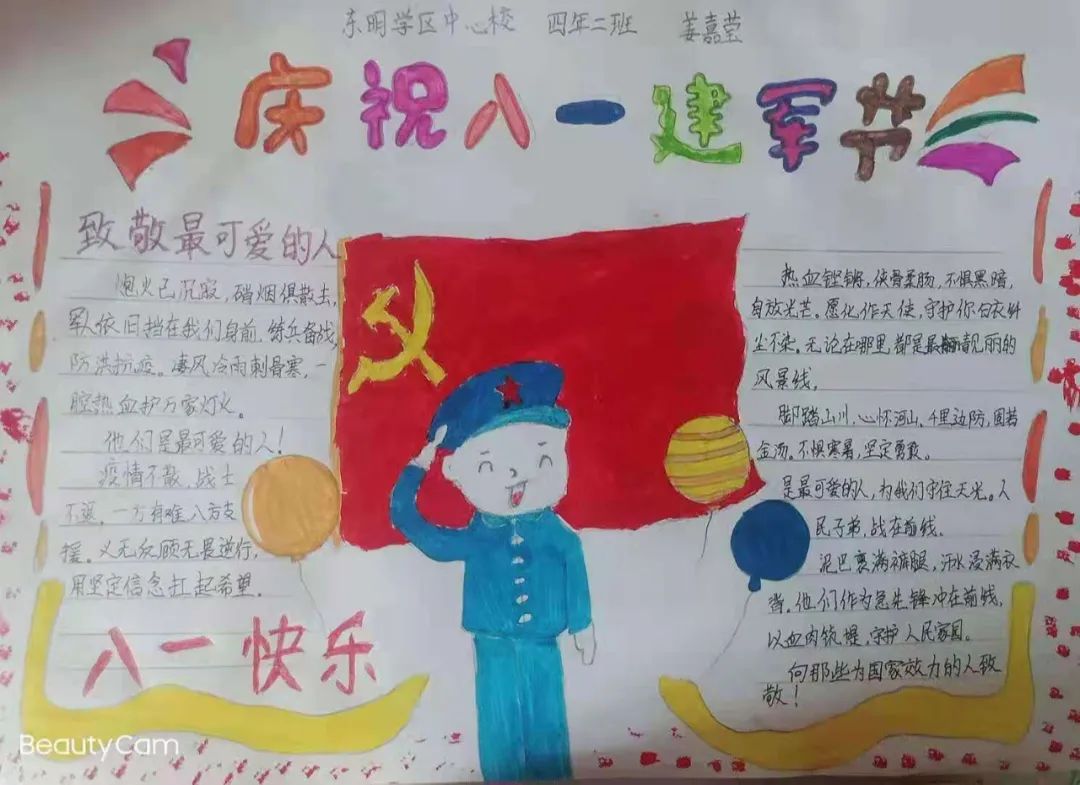 东明学区中心校 四年二班 姜嘉莹
庆祝八一建军节
致敬最可爱的人
炮火已沉寂，硝烟俱散去，
军人依旧挡在我们身前，练兵备战，
防洪抗疫。凄风冷雨刺骨寒，一
腔热血护万家灯火。
他们是最可爱的人！
疫情不散，战士
不退。一方有难八方支
援。义无反顾无畏逆行，
用坚定信念扛起希望。
八一快乐
热血铿锵，侠骨柔肠，不惧黑暗，
自放光芒。愿化作天使，守护你白衣纤
尘不染。无论在哪里，都是最靓丽的
风景线。
脚踏山川，心怀河山，千里边防，固若
金汤。不惧寒暑，坚定勇敢。
是最可爱的人，为我们守住天光。人
民子弟，战在前线。
泥巴裹满裤腿，汗水浸满衣
背。他们作为急先锋冲在前线，
以血肉筑堤，守护人民家园。
向那些为国家效力的人致
敬！
BeautyCam